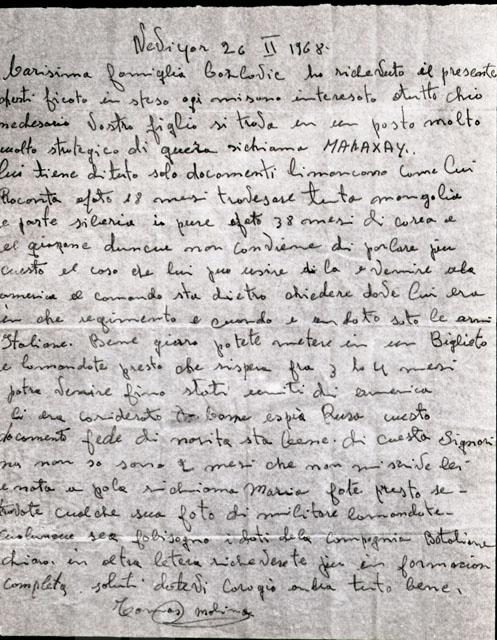 Nediyor 26 II 1968.
Carisima famiglia Cozlodic ho richevuto il presente
ficoto in steso ogi misono interesoto tutti chio
nechesario Vostro figlio si troda in un posto molto
molto strutegico di guera richiama MARAXAY.
lui tiene di tuto solo documenti limoncono come lui
Roconta efoto 18 mesi trodesare tuta mongolia
e parte siberia io pure efoto 38 mesi di corea e
el quozone dunque non condiene di porlare piu
cuesto el coso che lui puo usire di la e demire ala
america el comando sta dietro chiedere dode lui era
in che regimento e cuando e un doto soto le armi
Italiane. Bene giaro potete metere in un Biglieto
e lamondote presto che rispera fra 3 ho 4 mesi
potra demire fino stati uniti di america
li era cosiderito come espia Rusa cuesto
documento fede di novita sta bene. di cuesta Signori
na non so sono 2 mesi che non mi scride lei
e nata a pola richiama Maria fote presto se
trodote cualche sua foto di militare lamondote
cualunque sea fobisogno i doti dela Compagnia Botolione
chiaro. in altra letera richeverete piu in formacion
completa saluti detedi corogio andra tuto bene.
Tomas Molina